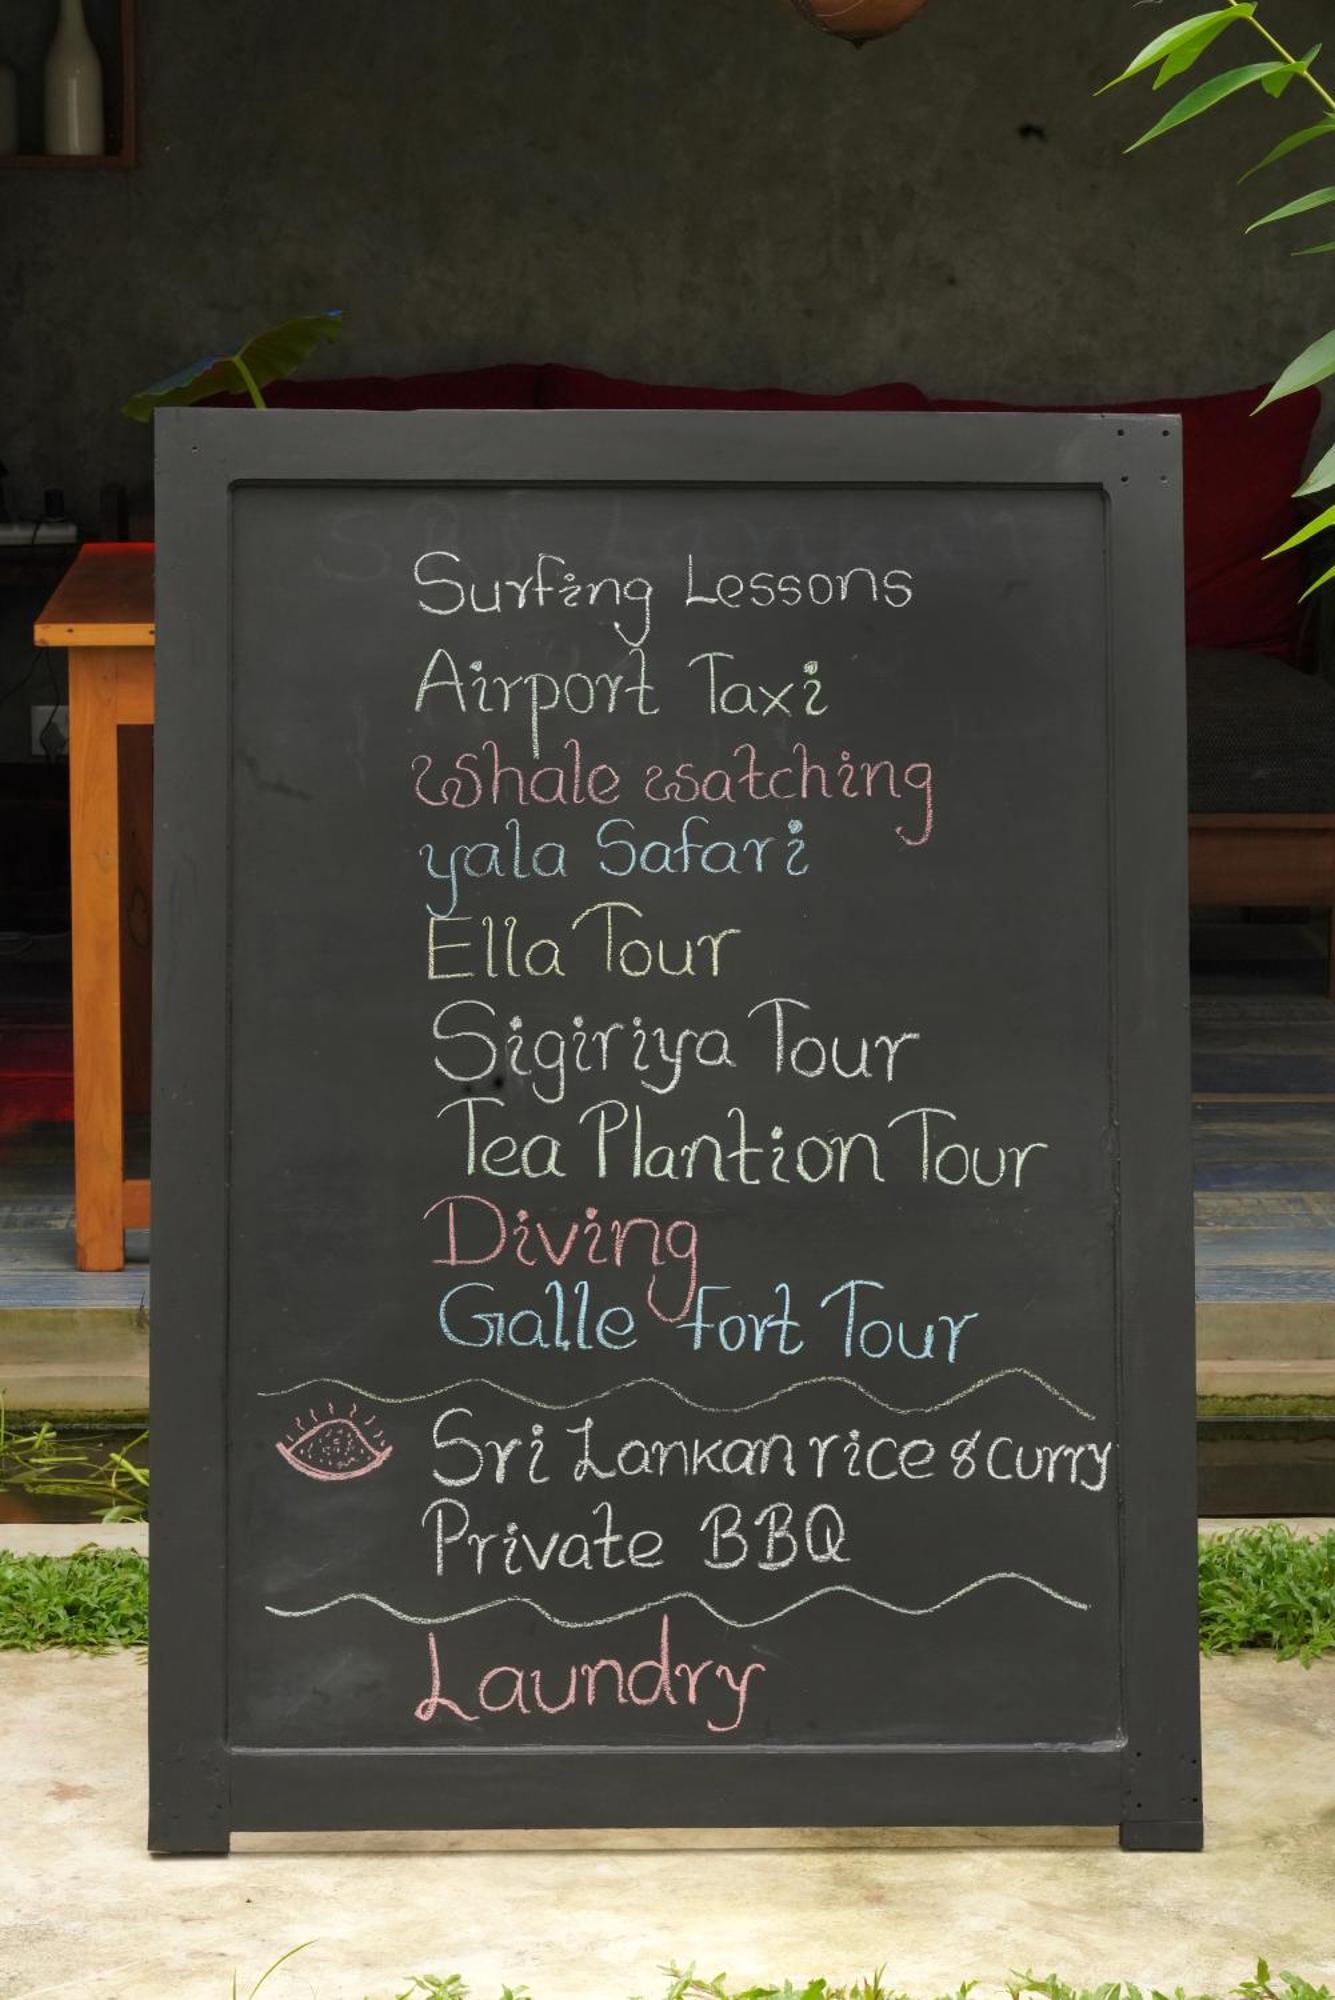 Surfing Lessons
Airport Taxi
Whale watching
yala Safari
Ella Tour
Sigiriya Tour
Tea Plantion Tour
Diving
Galle Fort Tour
Sri Lankan rice & curry
Private BBQ
Laundry